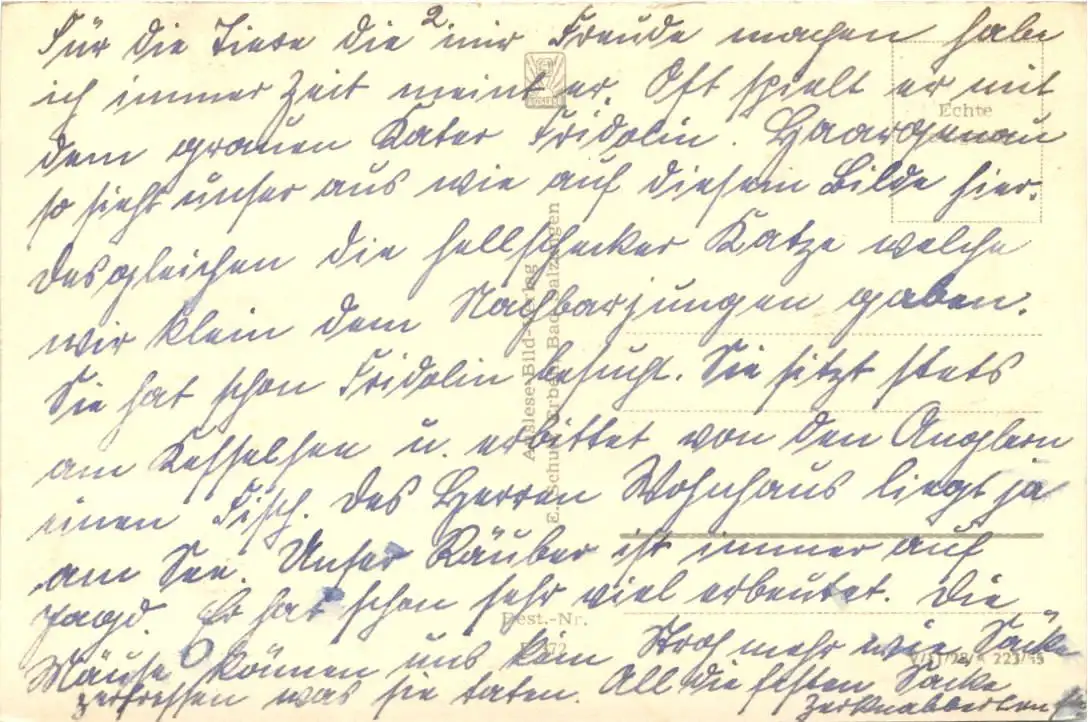 2.
Für die Tiere die mir Freude machen habe
ich immer Zeit meint er. Oft spielt er mit
dem grauen Kater Fridolin. Haargenau
so sieht unser aus wie auf diesem Bilde hier.
Desgleichen die hellschecker Katze welche
wir klein dem Nachbarjungen gaben.
Sie hat schon Fridolin besucht. Sie sitzt stets
am Kesselsee u. erbittet von den Anglern
einen Fisch. Des Herren Wohnhaus liegt ja
am See. Unser Räuber ist immer auf
Jagd. Er hat schon sehr viel erbeutet. Die
Mäuse können uns kein Stroh mehr wie Säcke
zerfressen was sie taten. All die festen Säcke
Echte
Auslese-Bild-Verlag
E. Schu Erben Bad Salzungen
Best.-Nr.